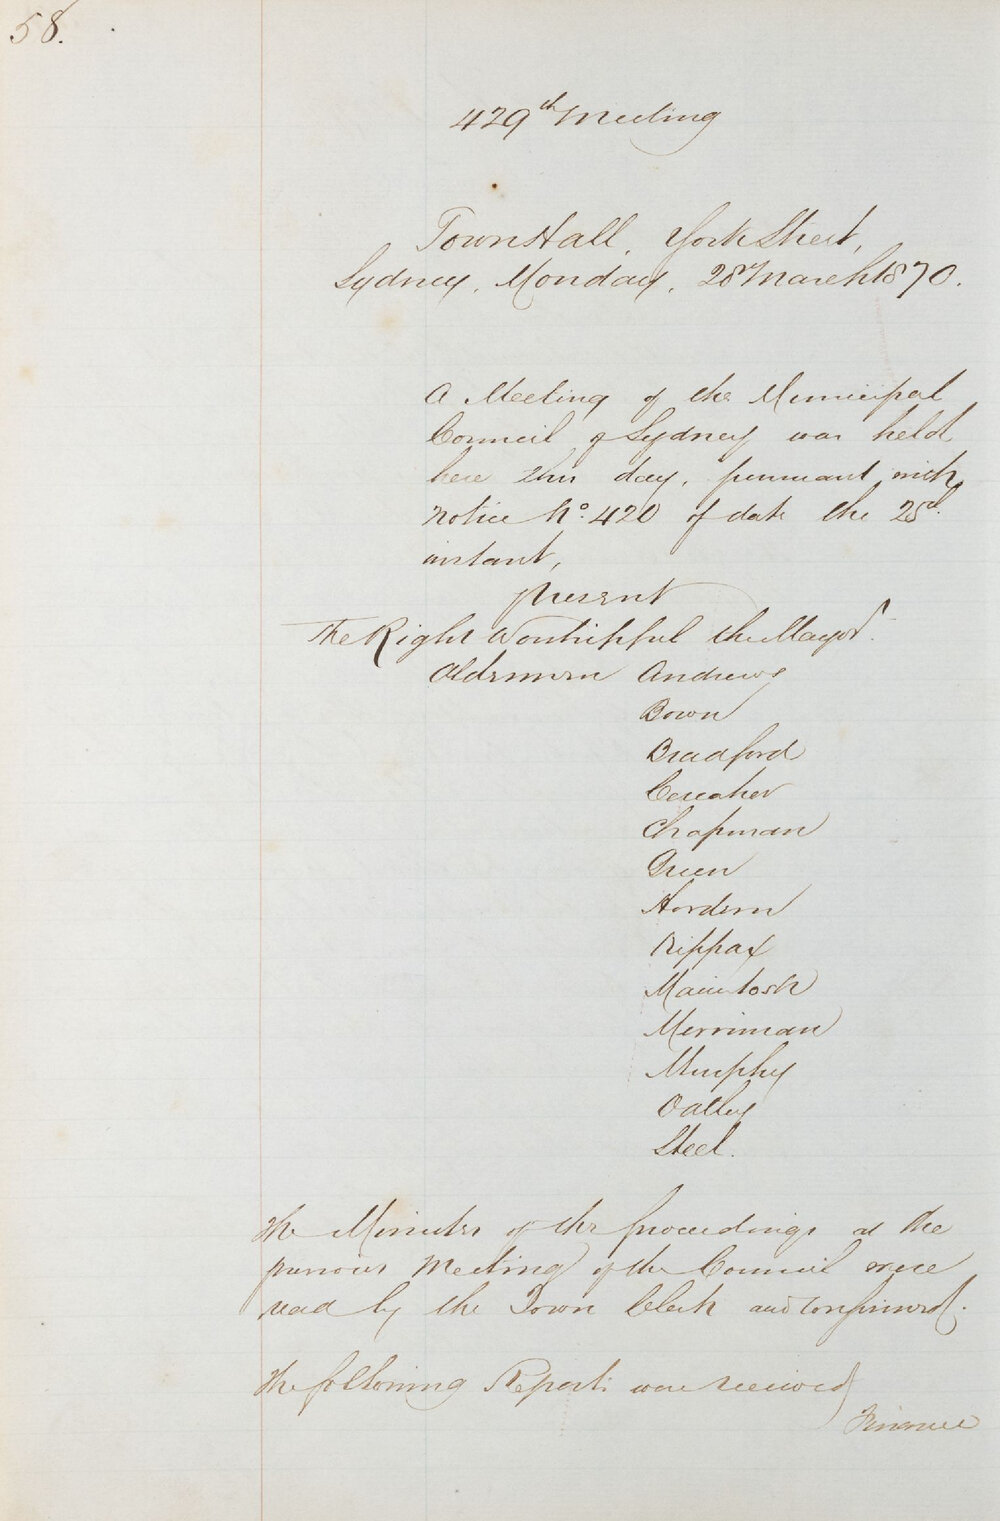 58.
429th Meeting
Town Hall, York Street,
Sydney, Monday, 28th March 1870.
A Meeting of the Municipal
Council of Sydney was held
here this day, pursuant with
notice No. 420 of date the 25th
instant,
present
The Right Worshipful the Mayor.
Aldermen Andrews
Bown
Bradford
Caraher
Chapman
Green
Hordern
Kippax
Macintosh
Merriman
Murphy
Oatley
Steel.
The Minutes of the proceedings at the
previous Meeting of the Council were
read by the Town Clerk and confirmed.
The following Reports were received
Finance